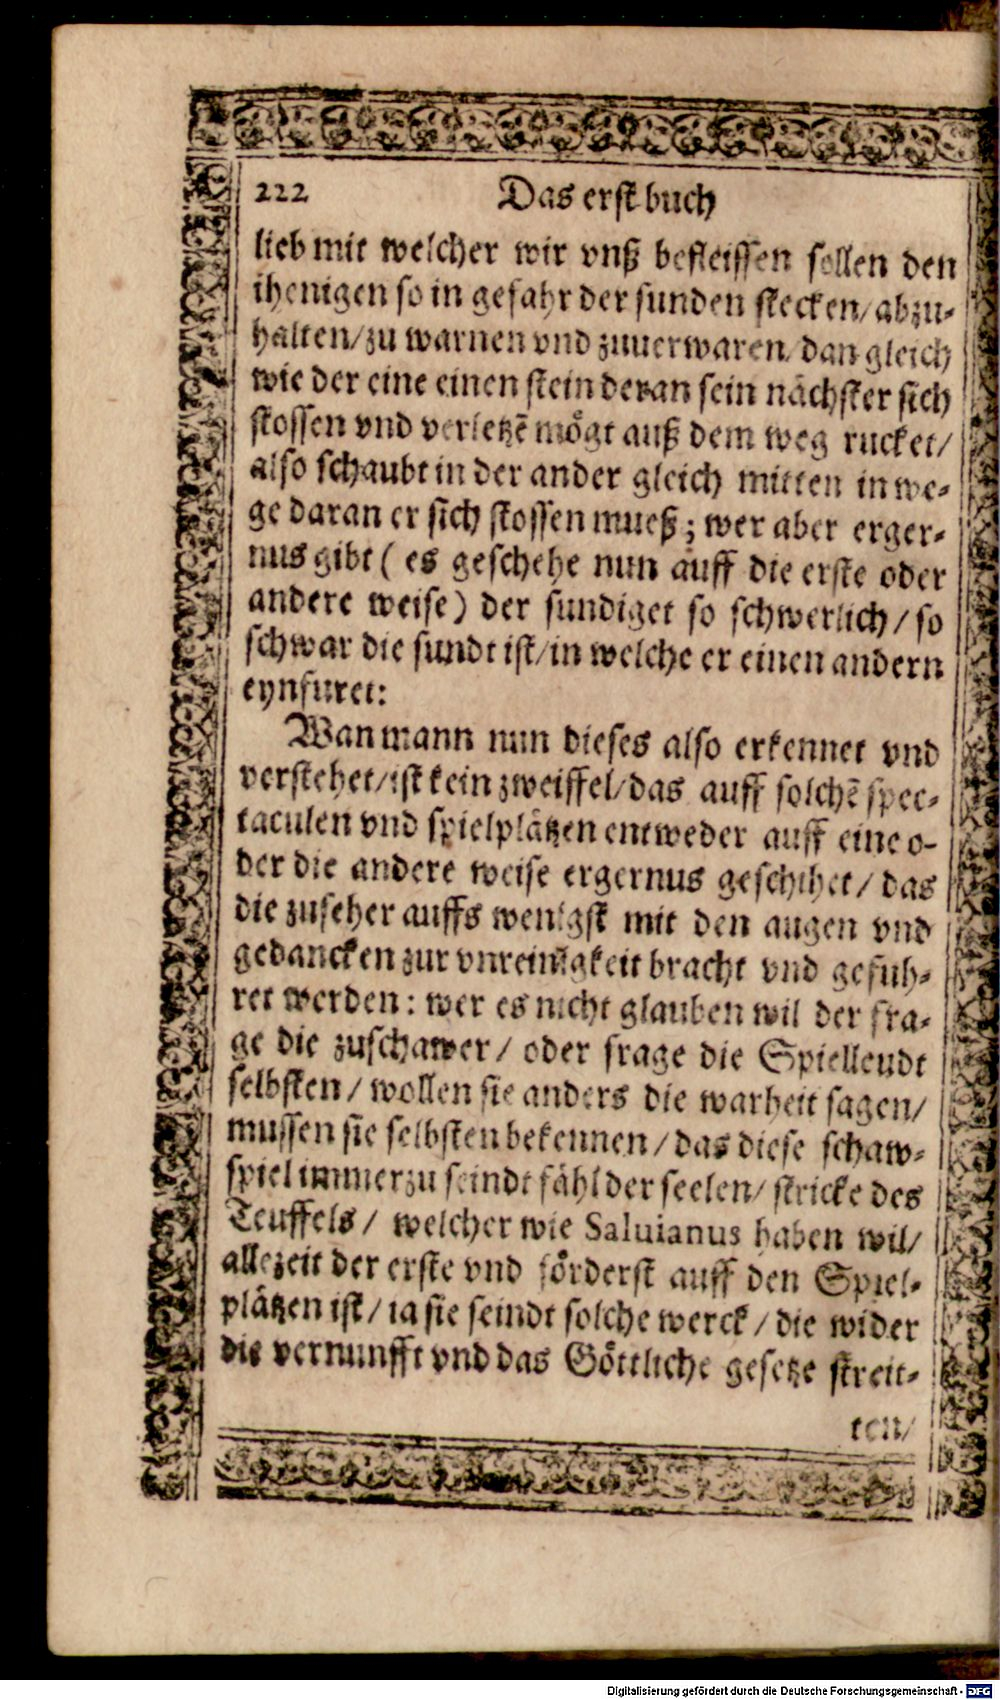 222 Das erst buch
lieb mit welcher wir vnß befleissen sollen den
ihenigen so in gefahr der sunden stecken/abzu-
halten/zu warnen vnd zuuerwaren/dan gleich
wie der eine einen stein deran sein nächster sich
stossen vnd verletzẽ mögt auß dem weg rucket/
also schaubt in der ander gleich mitten in we-
ge daran er sich stossen mueß; wer aber erger-
nus gibt ( es geschehe nun auff die erste oder
andere weise) der sundiget so schwerlich/so
schwar die sundt ist/in welche er einen andern
eynfuret:
Wan mann nun dieses also erkennet vnd
verstehet/ist kein zweiffel/das auff solchẽ spec-
taculen vnd spielplätzen entweder auff eine o-
der die andere weise ergernus geschihet/ das
die zuseher auffs wenigst mit den augen vnd
gedancken zur vnreinigkeit bracht vnd gefuh-
ret werden: wer es nicht glauben wil der fra-
ge die zuschawer/ oder frage die Spielleudt
selbsten/ wollen sie anders die warheit sagen/
mussen sie selbsten bekennen/das diese schaw-
spiel immerzu seindt fähl der seelen/ stricke des
Teuffels/ welcher wie Saluianus haben wil/
allezeit der erste vnd förderst auff den Spiel-
plätzen ist/ ia sie seindt solche werck/die wider
die vernunfft vnd das Göttliche gesetze streit-
ten/
Digitalisierung gefördert durch die Deutsche Forschungsgemeinschaft - DFG